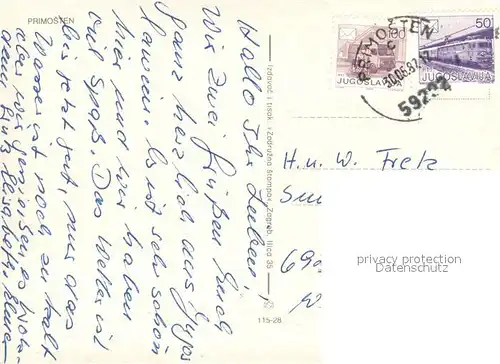 PRIMOŠTEN
Hallo Ihr Lieben,
Wir zwei grüßen Euch
ganz herzlich aus Jugos-
lawien. Es ist sehr schön
hier und wir haben
viel Spaß. Das Wetter ist
bis jetzt gut, nur das
Wasser ist noch zu kalt
aber wir genießen es
Gruß Elisabeth
Izdavač i tisak »Zadružna štampa«, Zagreb, Ilica 35
115-28
JUGOSLAVIJA
50
JUGOSLAVIJA
PRIMOŠTEN
30.06.87.17
59224
H. u. W. Fretz
690
privacy protection
Datenschutz